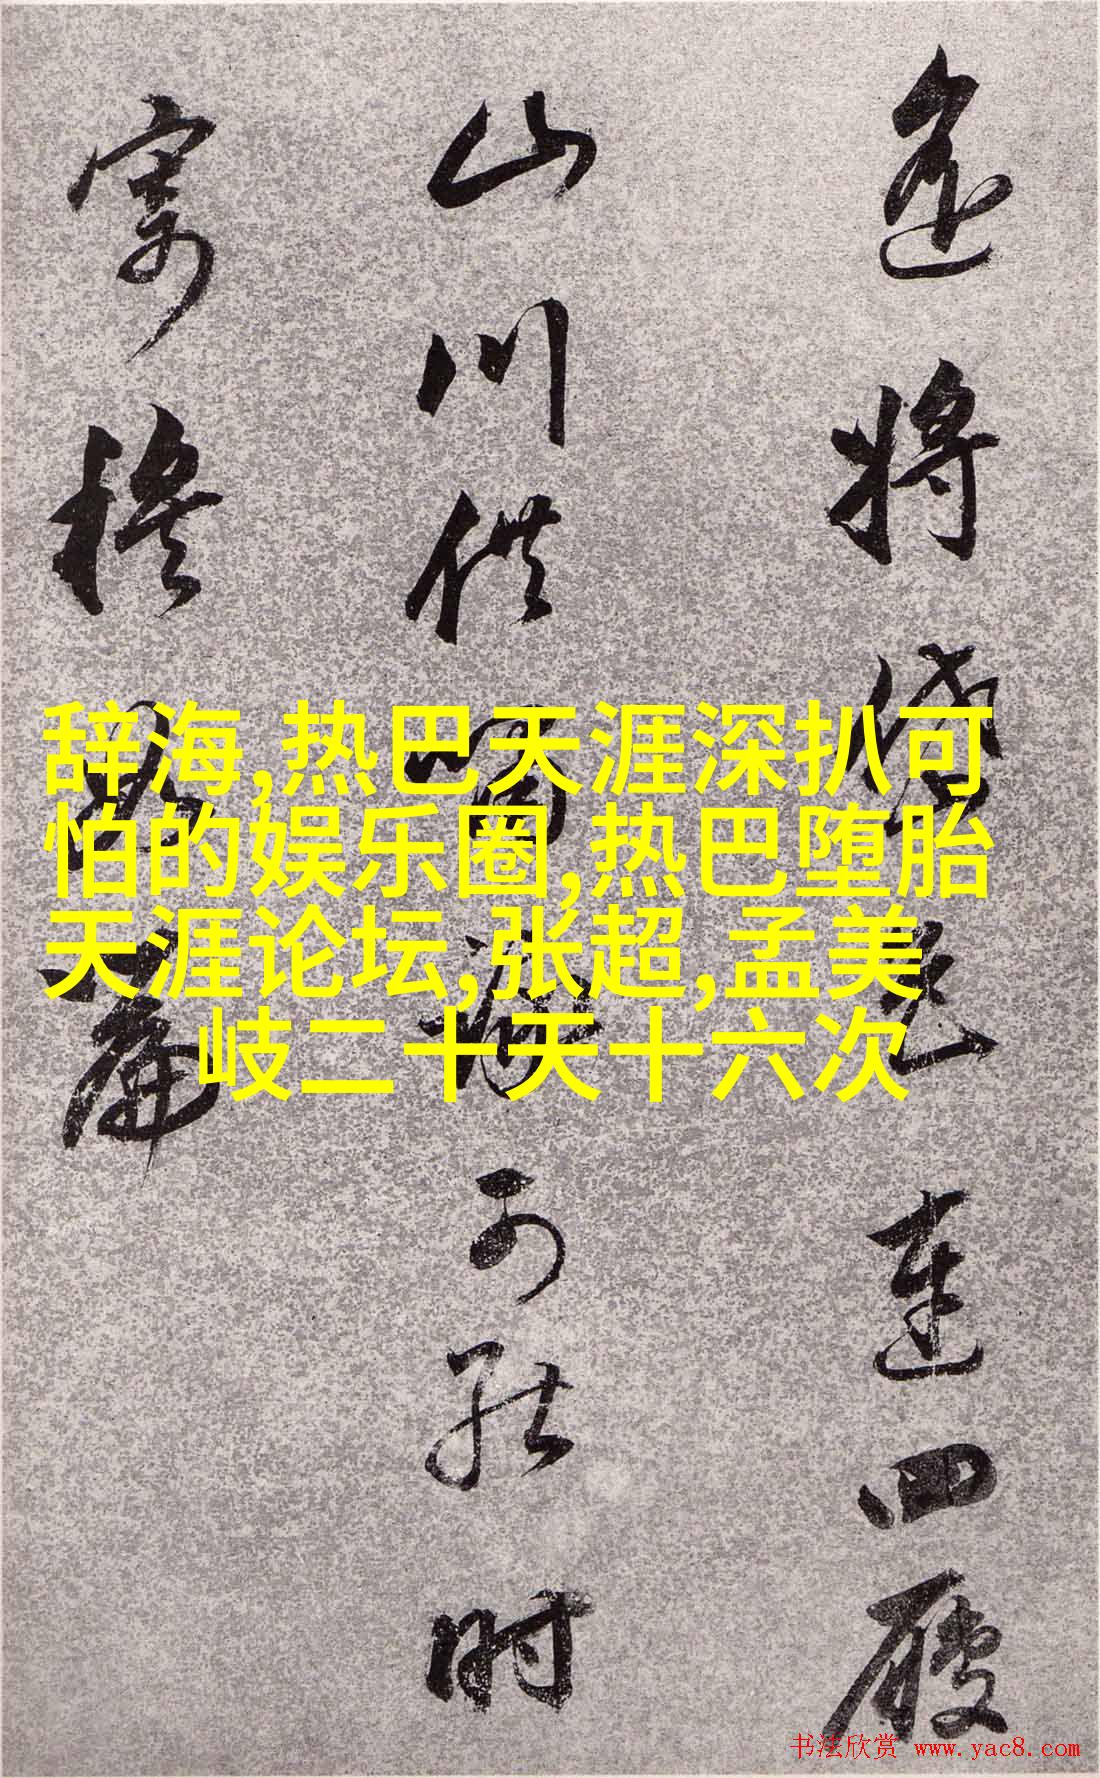 将岱色連四履
山川供可能时
寄穆篇
辞海,热巴天涯深扒可
怕的娱乐圈,热巴堕胎
天涯论坛,张超,孟美
岐二十天十六次
书法欣赏 www.yac8.com